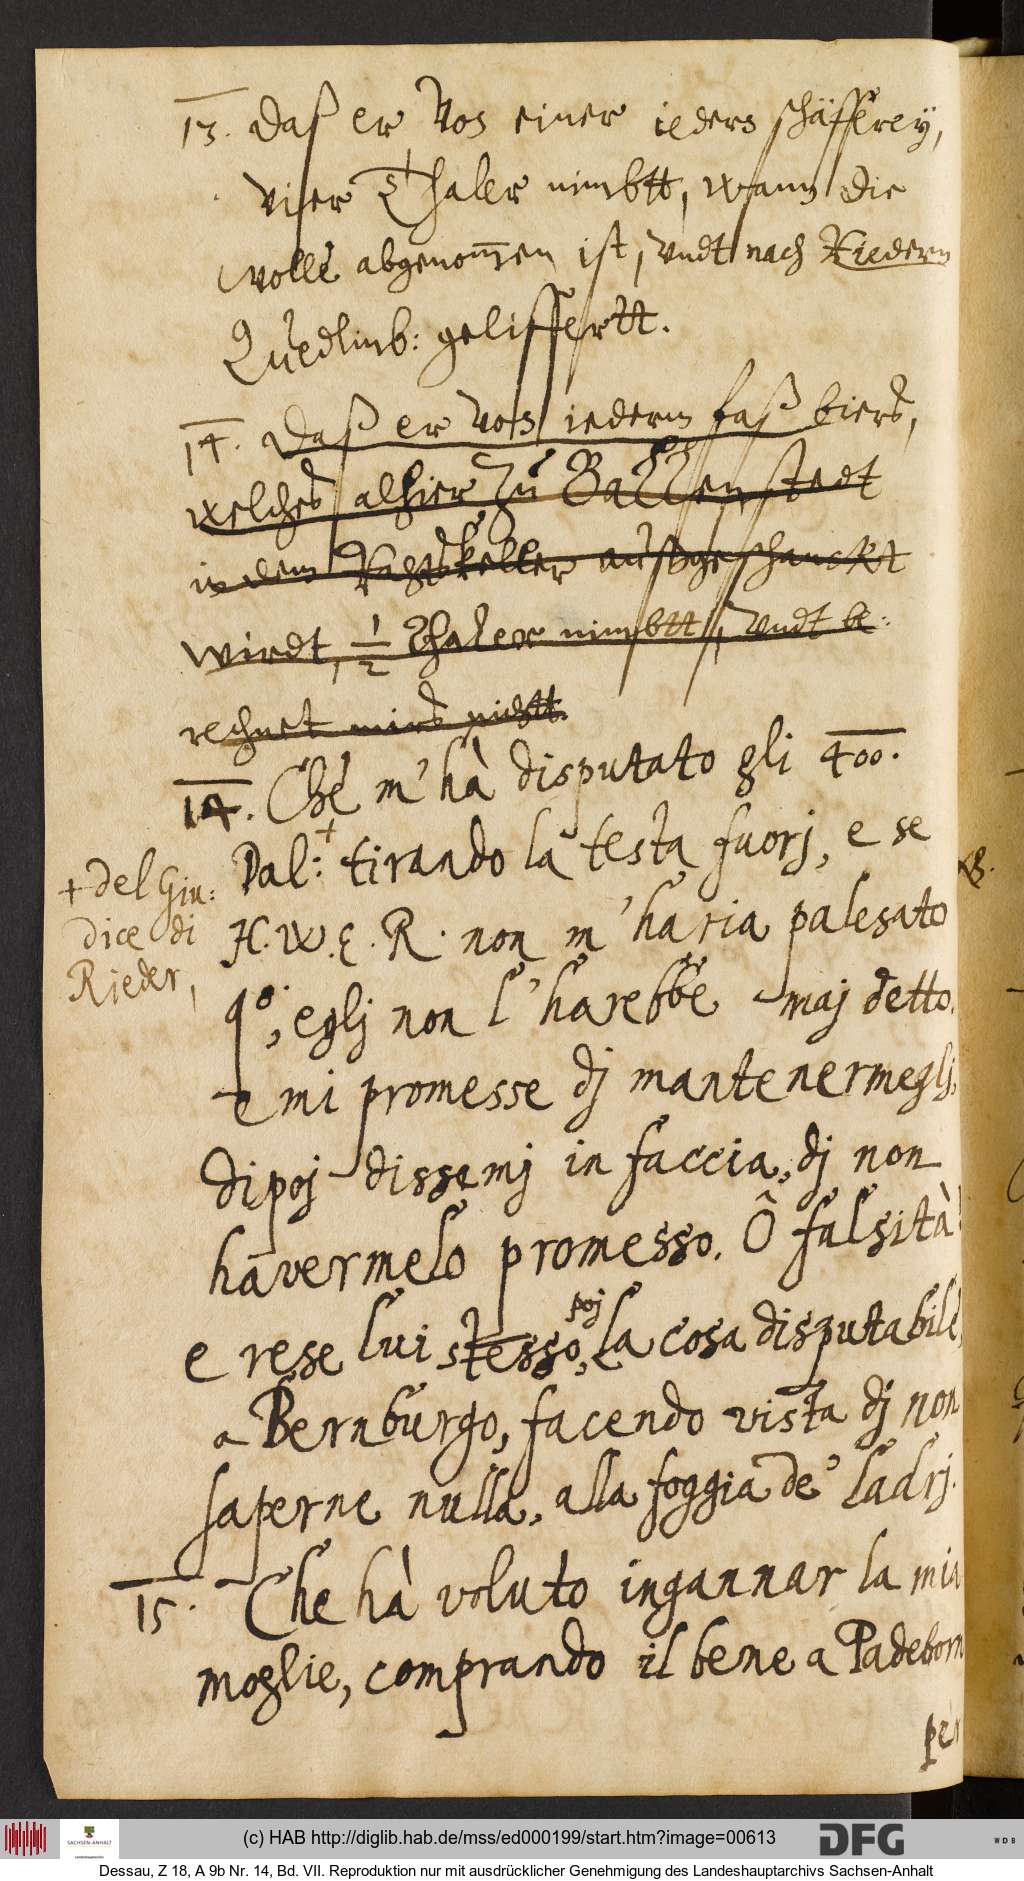 13. Daß er Von einer ieders schäfferey,
vier Thaler nimbtt, wann die
wolle abgenom̅en ist, Vndt nach Riedern
Quedlinb: geliffertt.
14. Daß er Von iederm faß bierß,
welches alhier zu Ballenstedt
in dem Rahtskeller außgeschanckt
wirdt, 1/2 Thaler nimbtt, Vndt be:
rechnet mirs nichtt.
14. Ché m'hà disputato gli 400.
Dal:+ tirando la testa fuorj, e se
+ del Giu:
dice di
Rieder,
H.W.E.R. non m'haria palesato
q.o, eglj non l'harebbe maj detto.
e mi promesse dj mantenermeglj,
dipoj dissemj in faccia, dj non
havermelo promesso. Ô falsità!
e rese lui stesso, poj la cosa disputabile,
a Bernburgo, facendo vista dj non
saperne nulla, alla foggia de' ladrj.
15. Che hà voluto ingannar la mia
moglie, comprando il bene a Padeborn
per
(c) HAB http://diglib.hab.de/mss/ed000199/start.htm?image=00613
SACHSEN-ANHALT
DFG
WDB
Dessau, Z 18, A 9b Nr. 14, Bd. VII. Reproduktion nur mit ausdrücklicher Genehmigung des Landeshauptarchivs Sachsen-Anhalt